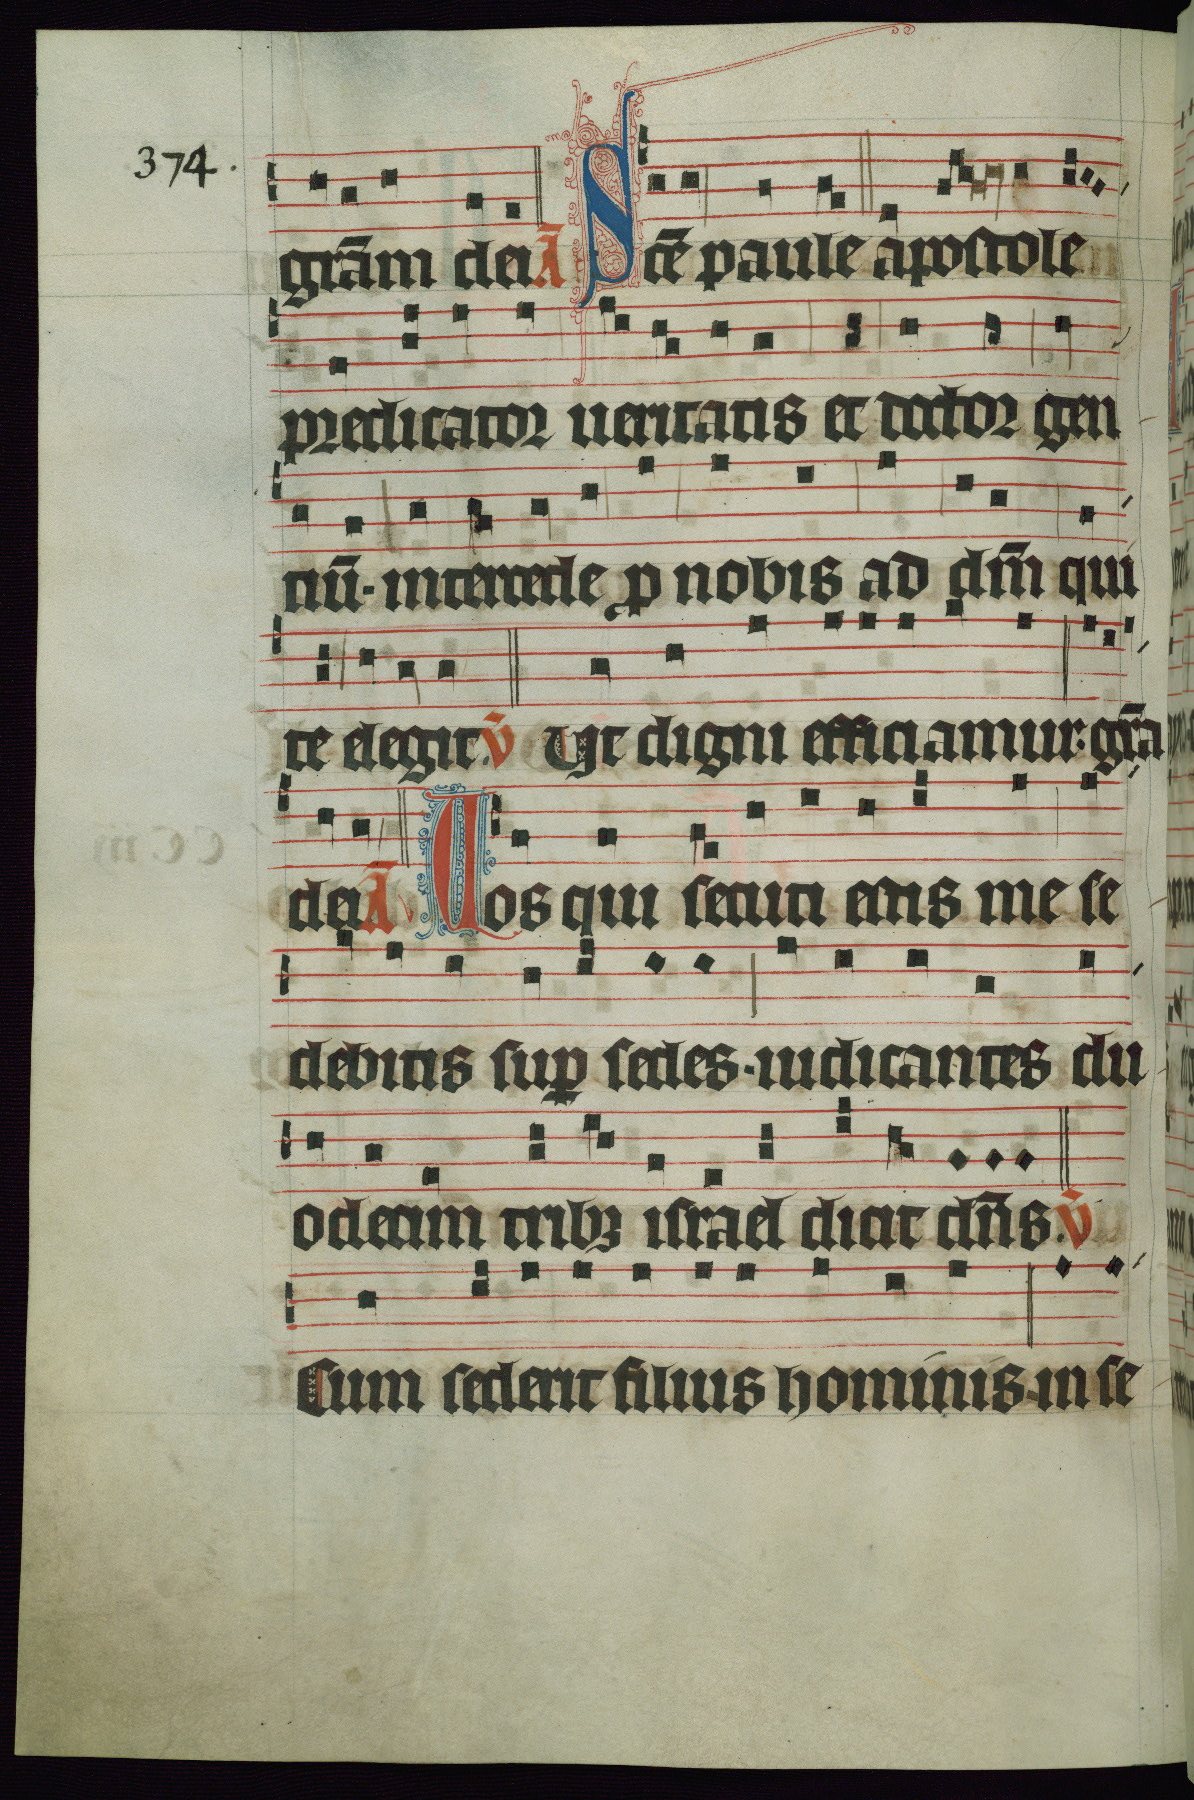 374.
grām dei Ā Scē paule apostole
predicator ueritatis et doctor gen
tiū. intercede ꝓ nobis ad dnm̄ qui
te elegit. v̄ Ut digni efficiamur. grā
dei Ā Uos qui secuti estis me se
debitis suꝑ sedes. iudicantes du
odecim tribꝫ israel dicit dn̄s. v̄
Cum sederit filius hominis in se